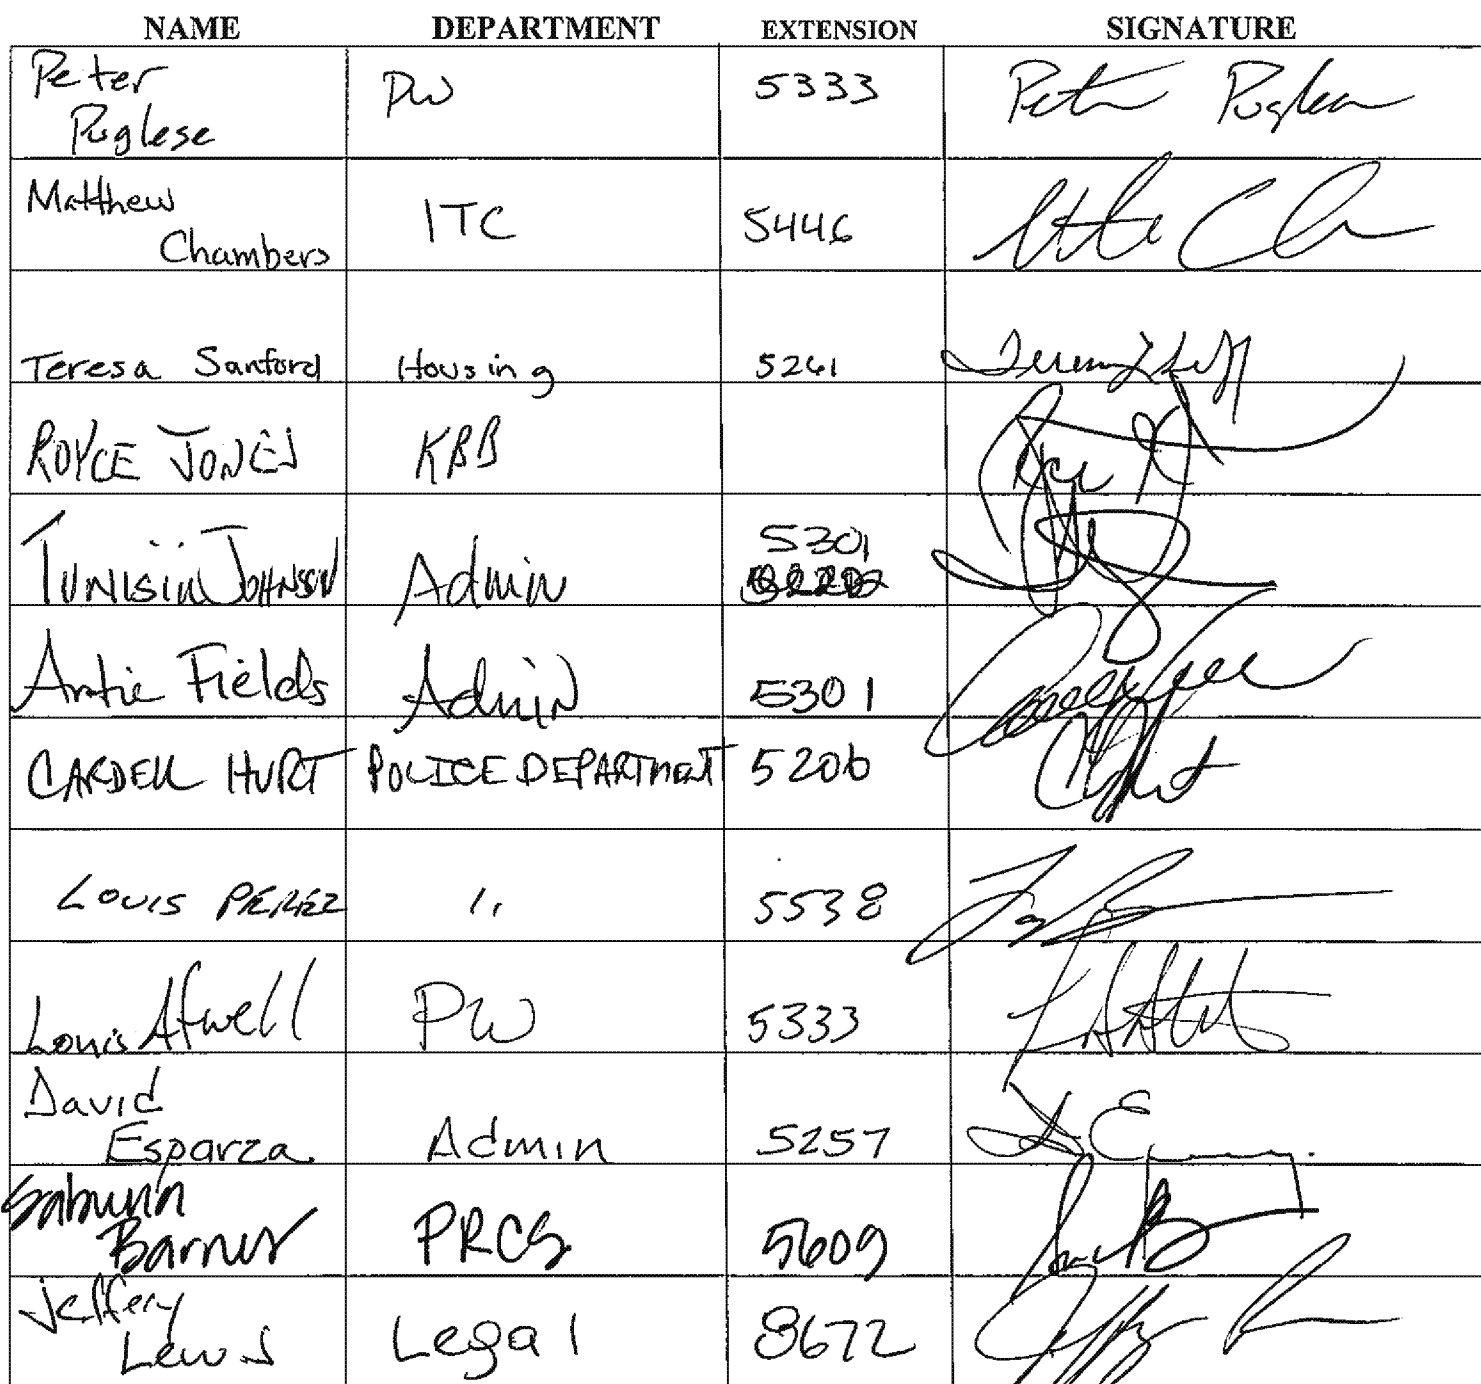 NAME DEPARTMENT EXTENSION SIGNATURE
Peter Puglese PW 5333
Matthew Chambers ITC 5446
Teresa Sanford Housing 5261
ROYCE JONES KBB
Tunisia Johnson Admin 5301
Artie Fields Admin 5301
CARDELL HURT POLICE DEPARTMENT 5206
LOUIS PEREZ " 5538
Louis Atwell PW 5333
David Esparza Admin 5257
Barner PRCS 5609
Jeffery Lewis Legal 8672